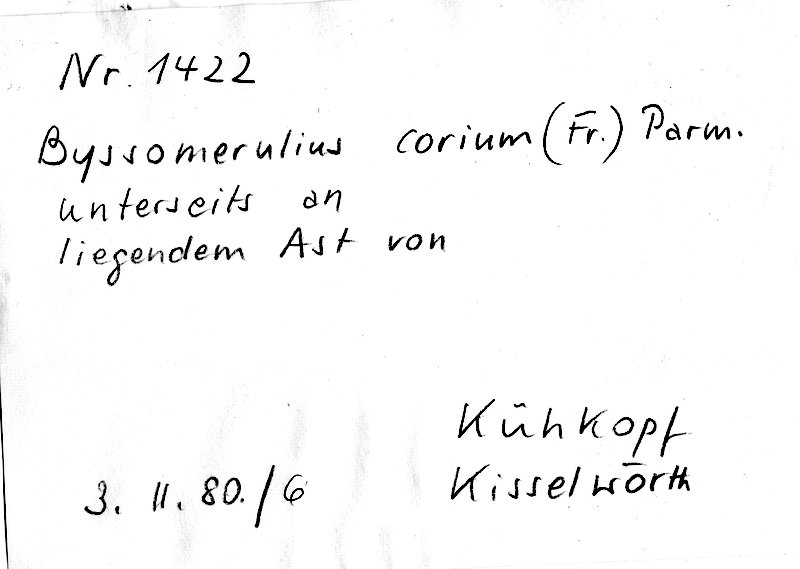 Nr. 1422
Byssomerulius corium (Fr.) Parm.
unterseits an
liegendem Ast von
Kühkopf
3. 11. 80. / 6 Kisselwörth